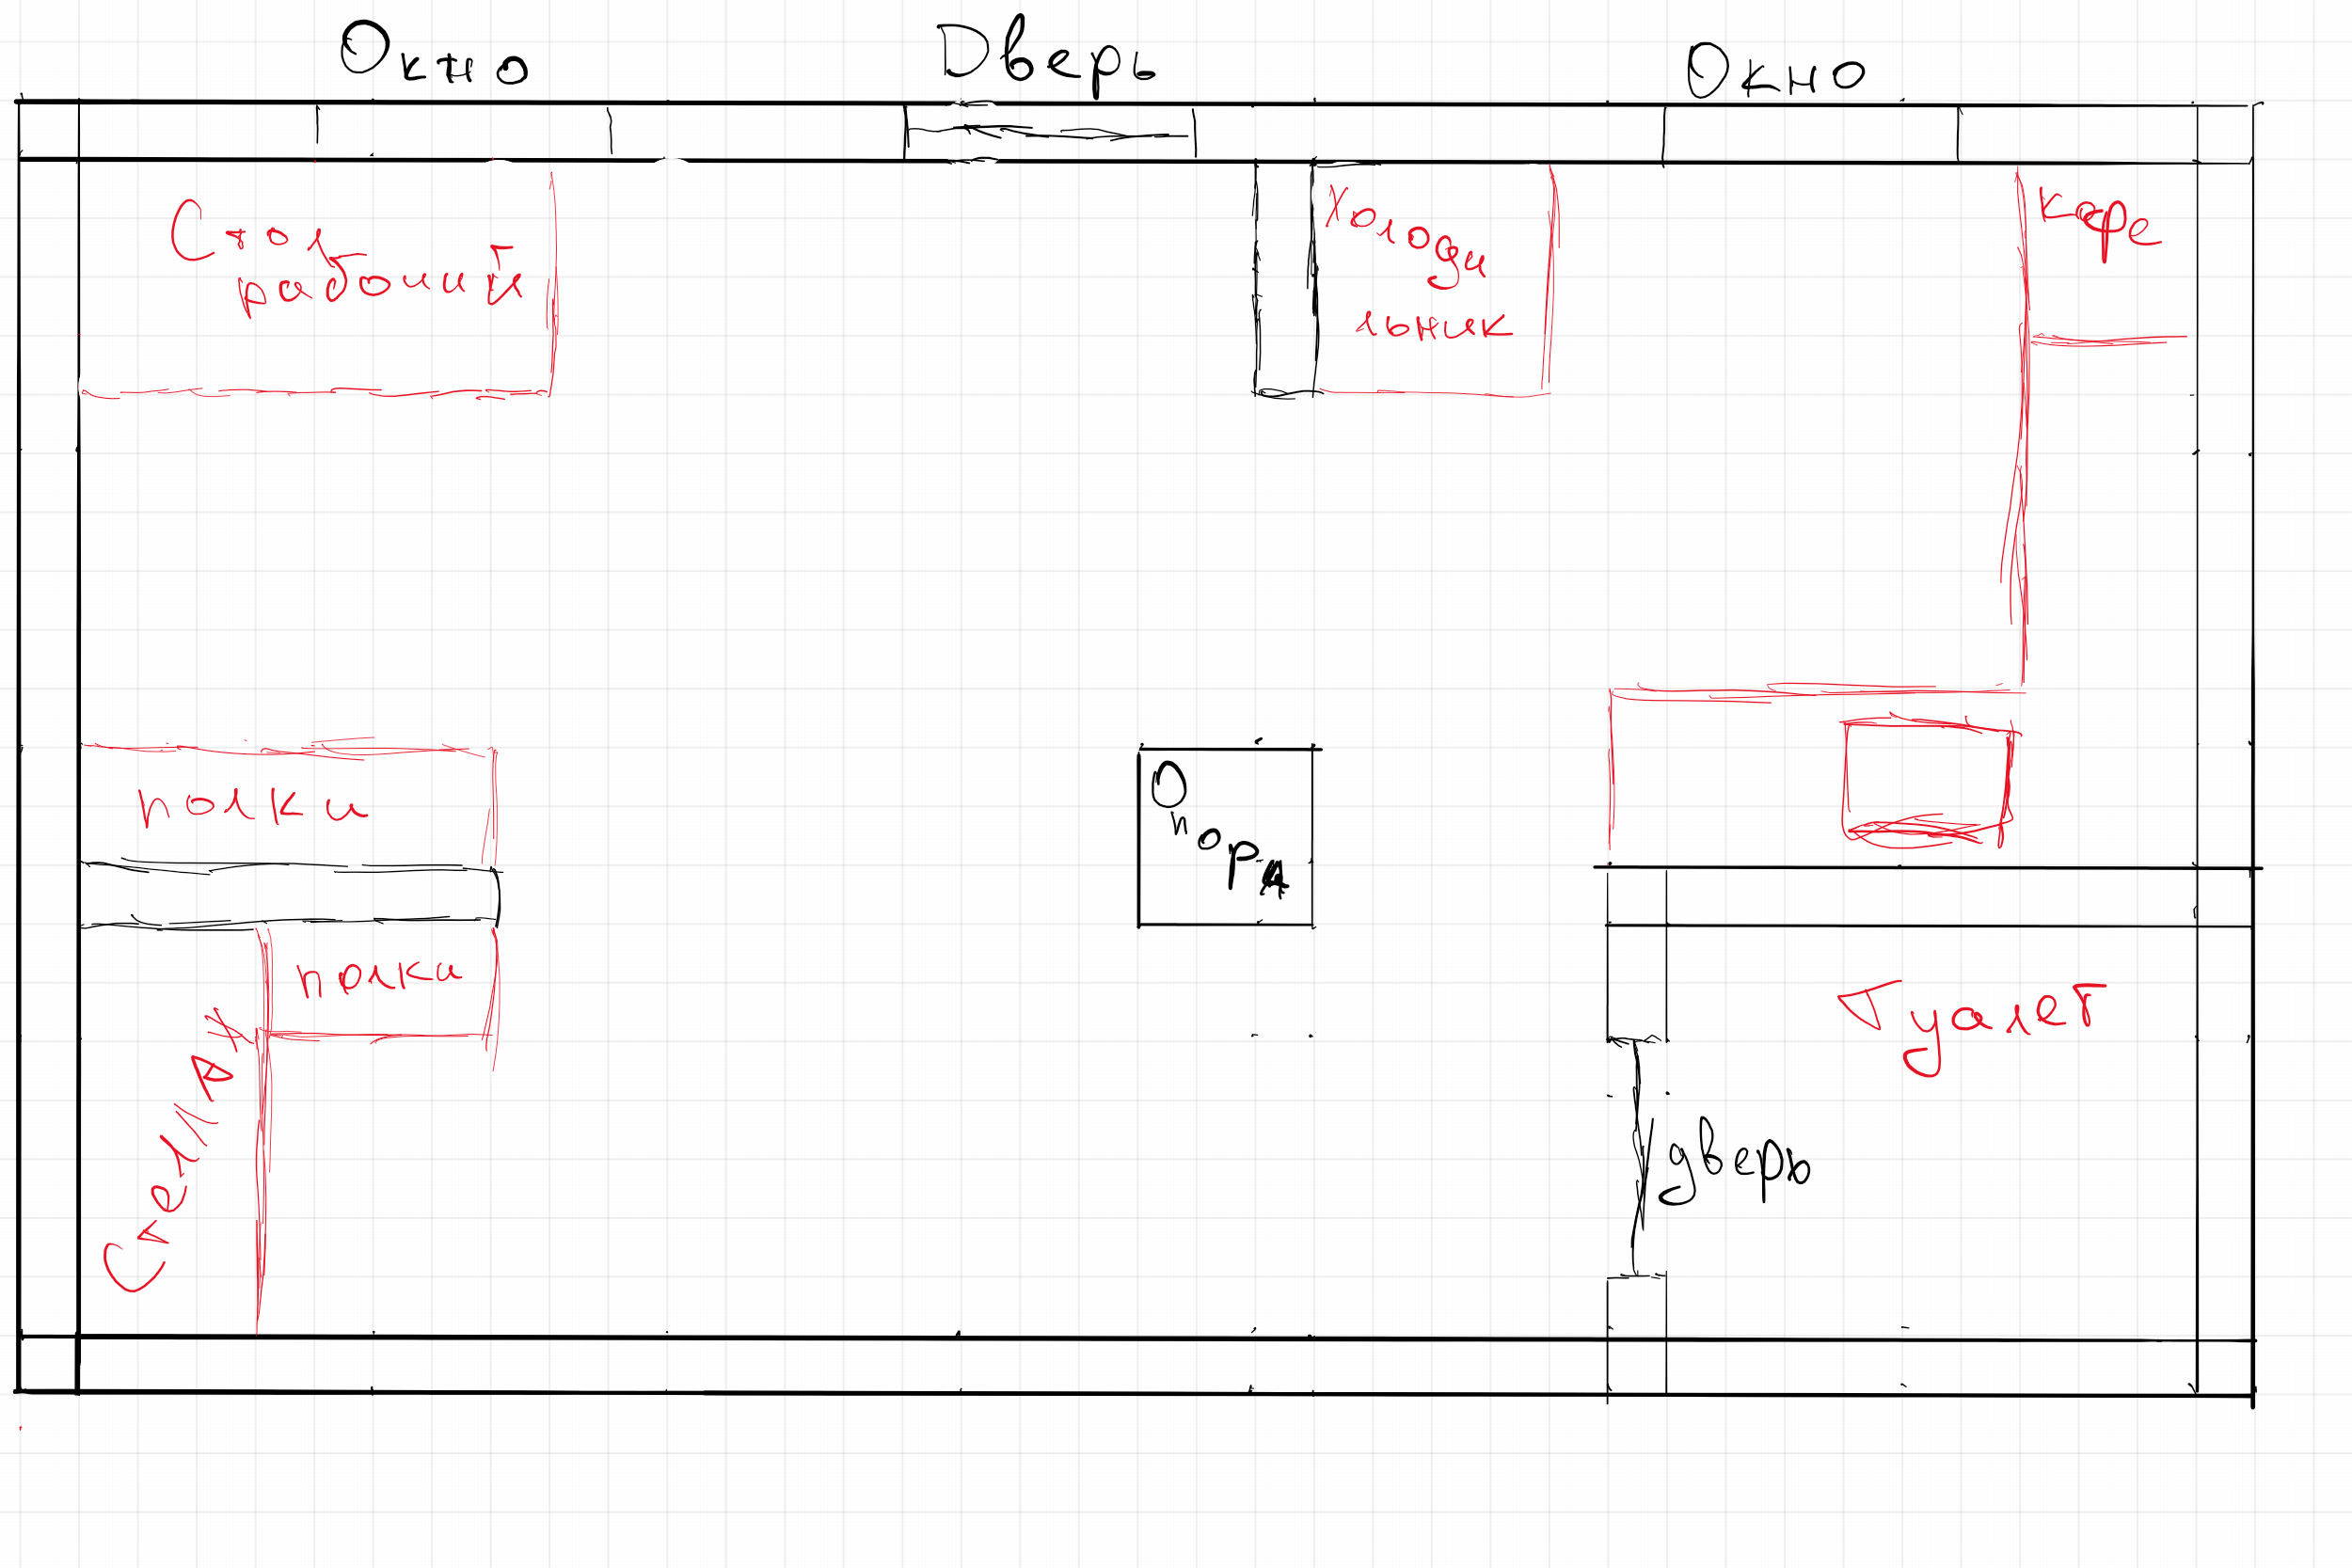 Окно
Дверь
Окно
Стол
рабочий
Холоди
льник
кофе
полки
Опора
полки
Стеллаж
Туалет
дверь